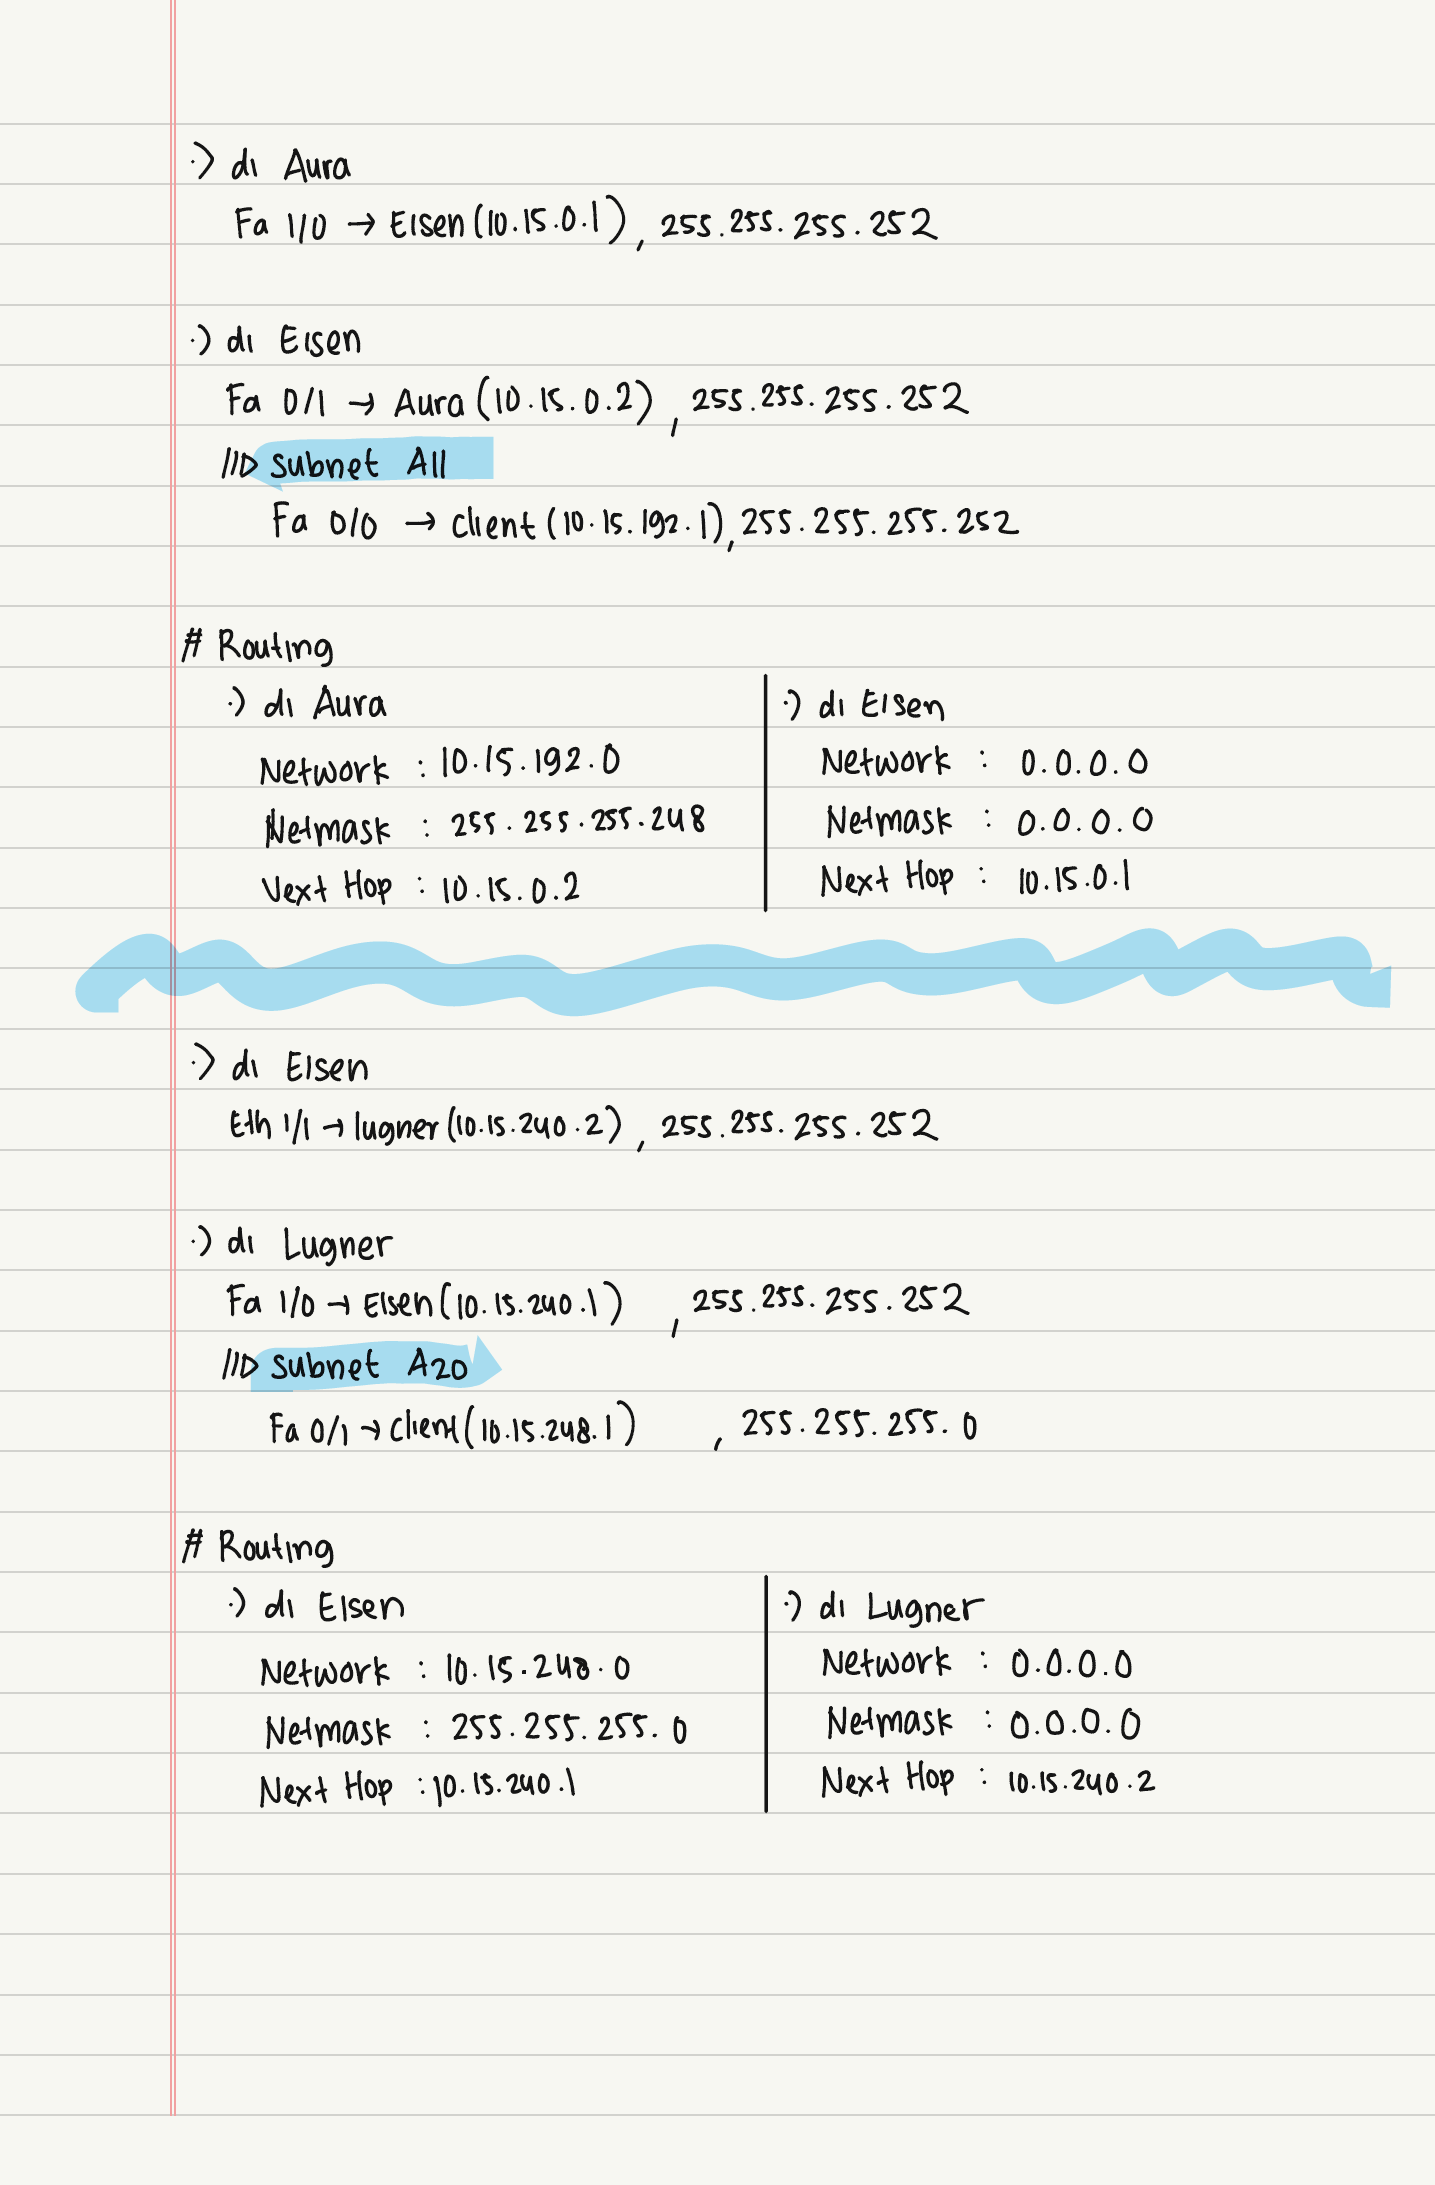 ·) di Aura
Fa 1/0 → Eisen (10.15.0.1), 255.255.255.252
·) di Eisen
Fa 0/1 → Aura (10.15.0.2), 255.255.255.252
Subnet A11
Fa 0/0 → client (10.15.192.1), 255.255.255.252
# Routing
·) di Aura
Network : 10.15.192.0
Netmask : 255.255.255.248
Next Hop : 10.15.0.2
·) di Eisen
Network : 0.0.0.0
Netmask : 0.0.0.0
Next Hop : 10.15.0.1
·) di Eisen
Eth 1/1 → lugner (10.15.240.2), 255.255.255.252
·) di Lugner
Fa 1/0 → Eisen (10.15.240.1) , 255.255.255.252
Subnet A20
Fa 0/1 → client (10.15.248.1) , 255.255.255.0
# Routing
·) di Eisen
Network : 10.15.248.0
Netmask : 255.255.255.0
Next Hop : 10.15.240.1
·) di Lugner
Network : 0.0.0.0
Netmask : 0.0.0.0
Next Hop : 10.15.240.2